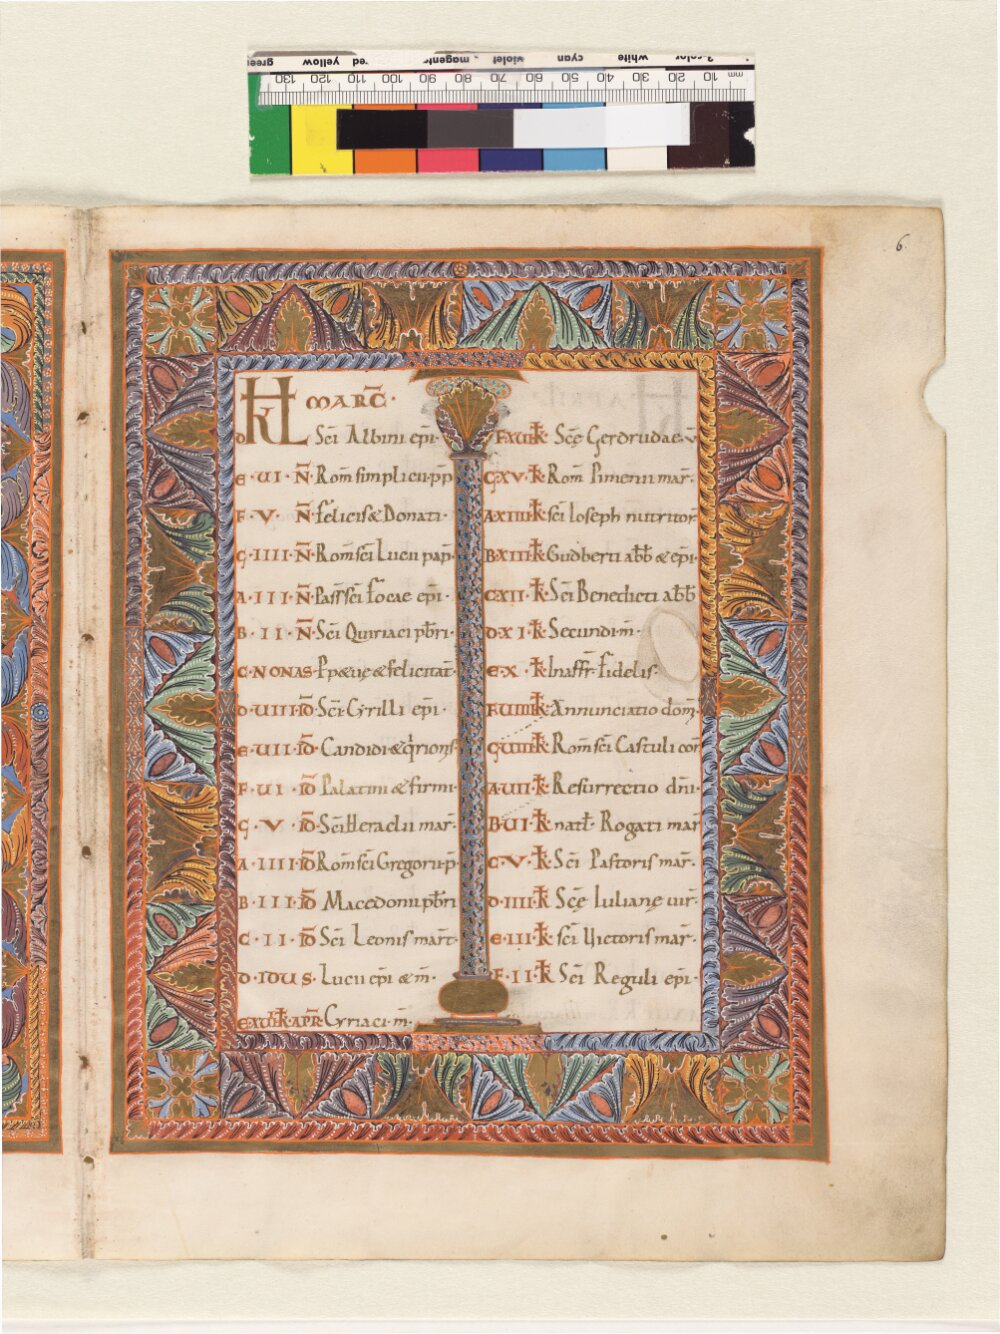 green yellow red magenta violet cyan white 3-color
130 120 110 100 90 80 70 60 50 40 30 20 10 mm
6.
KL MARC̄·
D Sc̄i Albini ep̄i·
E·UI·N̄·Rom̄ simplicii·pp̄
F·V· N̄·felicis& Donati·
G·IIII·N̄·Rom̄ sc̄i Lucii pap̄·
A·III·N̄·Pass̄ sc̄i focae ep̄i·
B·II·N̄·Sc̄i Quiriaci pb̄ri·
C·NONAS·Ppę&uę&felicitat̄·
D·UIII·ID̄·Sc̄i Cyrilli ep̄i·
E·UII·ID̄·Candidi&q̄rionis·
F·UI·ID̄·Palatini &firmi·
G·V·ID̄·Sc̄i Heraclii mar̄·
A·IIII·ID̄ Rom̄ sc̄i Gregorii·p̄
B·III·ID̄ Macedonii pb̄ri
C·II·ID̄ Sc̄i Leonis mart̄·
D·IDUS·Lucii ep̄i & m̄·
E·XUII·k̄·APR̄·Cyriaci·m̄·
F·XUI·k̄ Sc̄ę Gerdrudae·v̄
G·XV·k̄·Rom̄ Pimenii mar̄·
A·XIIII·k̄ sc̄i Ioseph nutritor̄
B·XIII·k̄ Gudberti abb̄ & ep̄i·
C·XII·k̄·Sc̄i Benedicti abb̄
D·XI·k̄·Secundi·m̄·
E·X·k̄·In affr̄· fidelis·
F·UIIII·k̄·Annunciatio dom̄·
G·UIII·k̄·Rom̄ sc̄i Castuli con̄
A·UII·k̄·Resurrectio dn̄i·
B·UI·k̄·nat̄l· Rogati mar̄
C·V·k̄·Sc̄i Pastoris mar̄·
D·IIII·k̄·Sc̄ę Iulianę uir̄·
E·III·k̄·sc̄i Uictoris mar̄·
F·II·k̄ Sc̄i Reguli ep̄i·